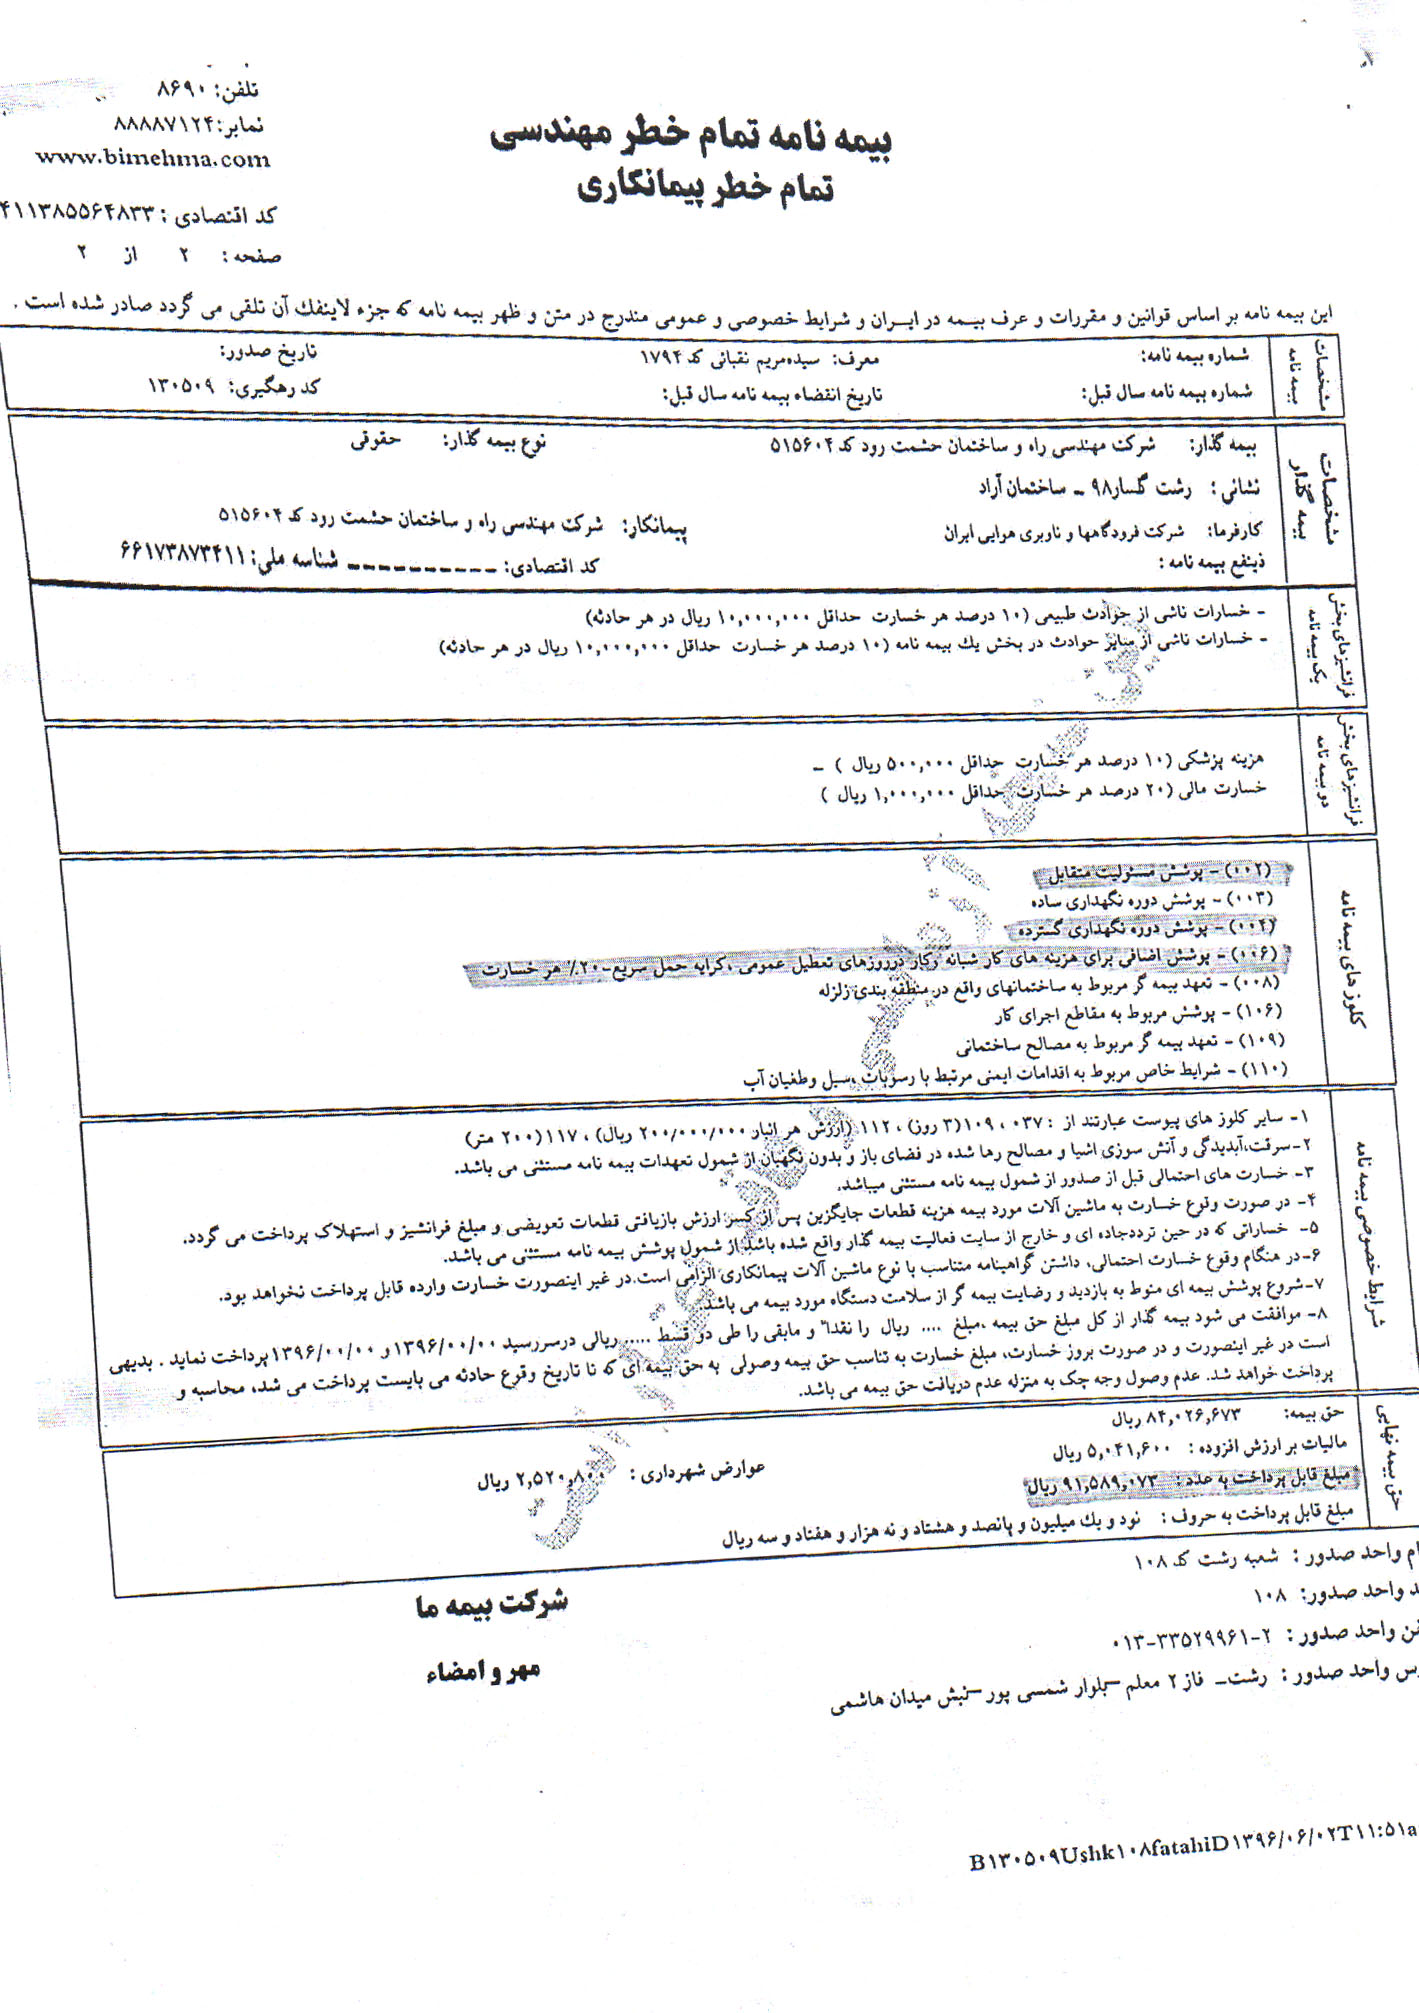 بیمه نامه تمام خطر مهندسی
تمام خطر پیمانکاری
تلفن: ۸۶۹۰
نمابر: ۸۸۸۸۷۱۲۴
www.bimehma.com
کد اقتصادی : ۴۱۱۳۸۵۵۶۴۸۳۳
صفحه : ۲ از ۲
این بیمه نامه بر اساس قوانین و مقررات و عرف بیمه در ایران و شرایط خصوصی و عمومی مندرج در متن و ظهر بیمه نامه که جزء لاینفک آن تلقی می گردد صادر شده است .
مشخصات بیمه نامه
شماره بیمه نامه: معرف: سیده مریم نقبائی کد ۱۷۹۴ تاریخ صدور:
شماره بیمه نامه سال قبل: تاریخ انقضاء بیمه نامه سال قبل: کد رهگیری: ۱۳۰۵۰۹
مشخصات بیمه گذار
بیمه گذار: شرکت مهندسی راه و ساختمان حشمت رود کد ۵۱۵۶۰۴ نوع بیمه گذار: حقوقی
نشانی : رشت گلسار ۹۸ - ساختمان آراد
کارفرما: شرکت فرودگاهها و ناوبری هوایی ایران پیمانکار: شرکت مهندسی راه و ساختمان حشمت رود کد ۵۱۵۶۰۴
ذینفع بیمه نامه : کد اقتصادی: ---------- شناسه ملی: ۶۶۱۷۳۸۷۳۴۱۱
فرانشیزهای بخش یک بیمه نامه
- خسارات ناشی از حوادث طبیعی (۱۰ درصد هر خسارت حداقل ۱۰,۰۰۰,۰۰۰ ریال در هر حادثه)
- خسارات ناشی از سایر حوادث در بخش یك بیمه نامه (۱۰ درصد هر خسارت حداقل ۱۰,۰۰۰,۰۰۰ ریال در هر حادثه)
فرانشیزهای بخش دو بیمه نامه
هزینه پزشکی (۱۰ درصد هر خسارت حداقل ۵۰۰,۰۰۰ ریال ) -
خسارت مالی (۲۰ درصد هر خسارت حداقل ۱,۰۰۰,۰۰۰ ریال )
کلوزهای بیمه نامه
(۰۰۲) - پوشش مسئولیت متقابل
(۰۰۳) - پوشش دوره نگهداری ساده
(۰۰۴) - پوشش دوره نگهداری گسترده
(۰۰۶) - پوشش اضافی برای هزینه های کار شبانه وکار درروزهای تعطیل عمومی ،کرایه حمل سریع-۲۰٪ هر خسارت
(۰۰۸) - تعهد بیمه گر مربوط به ساختمانهای واقع در منطقه بندی زلزله
(۱۰۶) - پوشش مربوط به مقاطع اجرای کار
(۱۰۹) - تعهد بیمه گر مربوط به مصالح ساختمانی
(۱۱۰) - شرایط خاص مربوط به اقدامات ایمنی مرتبط با رسوبات ،سیل وطغیان آب
شرایط خصوصی بیمه نامه
۱- سایر کلوز های پیوست عبارتند از : ۰۳۷ ، ۱۰۹(۳ روز) ، ۱۱۲ (ارزش هر انبار ۲۰۰/۰۰۰/۰۰۰ ریال) ، ۱۱۷(۲۰۰ متر)
۲-سرقت،آبدیدگی و آتش سوزی اشیا و مصالح رها شده در فضای باز و بدون نگهبان از شمول تعهدات بیمه نامه مستثنی می باشد.
۳- خسارت های احتمالی قبل از صدور از شمول بیمه نامه مستثنی میباشد.
۴- در صورت وقوع خسارت به ماشین آلات مورد بیمه هزینه قطعات جایگزین پس از کسر ارزش بازیافتی قطعات تعویضی و مبلغ فرانشیز و استهلاک پرداخت می گردد.
۵- خساراتی که در حین ترددجاده ای و خارج از سایت فعالیت بیمه گذار واقع شده باشد از شمول پوشش بیمه نامه مستثنی می باشد.
۶-در هنگام وقوع خسارت احتمالی، داشتن گواهینامه متناسب با نوع ماشین آلات پیمانکاری الزامی است.در غیر اینصورت خسارت وارده قابل پرداخت نخواهد بود.
۷-شروع پوشش بیمه ای منوط به بازدید و رضایت بیمه گر از سلامت دستگاه مورد بیمه می باشد.
۸- موافقت می شود بیمه گذار از کل مبلغ حق بیمه ،مبلغ .... ریال را نقداً و مابقی را طی دو قسط ..... ریالی درسررسید ۱۳۹۶/۰۰/۰۰ و ۱۳۹۶/۰۰/۰۰ پرداخت نماید . بدیهی
است در غیر اینصورت و در صورت بروز خسارت، مبلغ خسارت به تناسب حق بیمه وصولی به حق بیمه ای که تا تاریخ وقوع حادثه می بایست پرداخت می شد، محاسبه و
پرداخت خواهد شد. عدم وصول وجه چک به منزله عدم دریافت حق بیمه می باشد.
حق بیمه نهایی
حق بیمه: ۸۴,۰۲۶,۶۷۳ ریال
مالیات بر ارزش افزوده : ۵,۰۴۱,۶۰۰ ریال عوارض شهرداری : ۲,۵۲۰,۸۰۰ ریال
مبلغ قابل پرداخت به عدد : ۹۱,۵۸۹,۰۷۳ ریال
مبلغ قابل پرداخت به حروف : نود و یك میلیون و پانصد و هشتاد و نه هزار و هفتاد و سه ریال
ام واحد صدور : شعبه رشت کد ۱۰۸
د واحد صدور: ۱۰۸
فن واحد صدور : ۲-۳۳۵۲۹۹۶۱-۰۱۳
رس واحد صدور : رشت- فاز ۲ معلم -بلوار شمسی پور -نبش میدان هاشمی
شرکت بیمه ما
مهر و امضاء
B۱۳۰۵۰۹Ushk۱۰۸fatahiD۱۳۹۶/۰۶/۰۲T۱۱:۵۱a